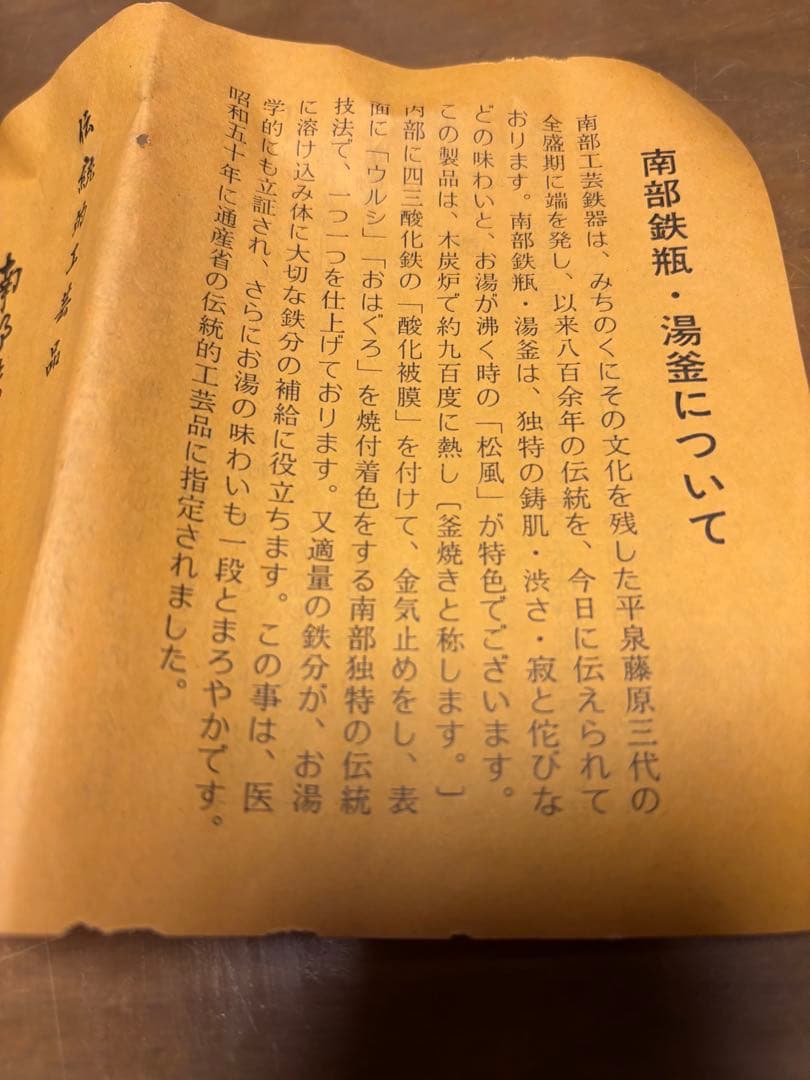 南部鉄瓶・湯釜について
南部工芸鉄器は、みちのくにその文化を残した平泉藤原三代の
全盛期に端を発し、以来八百余年の伝統を、今日に伝えられて
おります。南部鉄瓶・湯釜は、独特の鋳肌・渋さ・寂と侘びな
どの味わいと、お湯が沸く時の「松風」が特色でございます。
この製品は、木炭炉で約九百度に熱し〔釜焼きと称します。〕
内部に四三酸化鉄の「酸化被膜」を付けて、金気止めをし、表
面に「ウルシ」「おはぐろ」を焼付着色をする南部独特の伝統
技法で、一つ一つを仕上げております。又適量の鉄分が、お湯
に溶け込み体に大切な鉄分の補給に役立ちます。この事は、医
学的にも立証され、さらにお湯の味わいも一段とまろやかです。
昭和五十年に通産省の伝統的工芸品に指定されました。
伝統的工芸品
南部